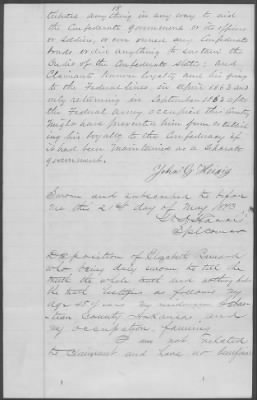 18
anything in any way to aid
the Confederate Government or its officers
or soldiers, or own owned any Confederate
bonds or did anything to sustain the
Credit of the Confederate States; and
Claimants known loyalty and his going
to the Federal lines in April 1863 and
only returning in September 1863 after
the Federal Army occupied this County
might have prevented him from establish
ing his loyalty to the Confederacy if
it had been maintained as a separate
government.
John G
Sworn and subscribed to before
me this 2nd day of May 1873
Spl Comr
Deposition of Elizabeth
who being duly sworn to tell the
truth the whole truth and nothing but
the truth testifies as follows my
age 45 years my residence
County Arkansas and
my occupation, farming
I am not related
to Claimant and have no beneficial